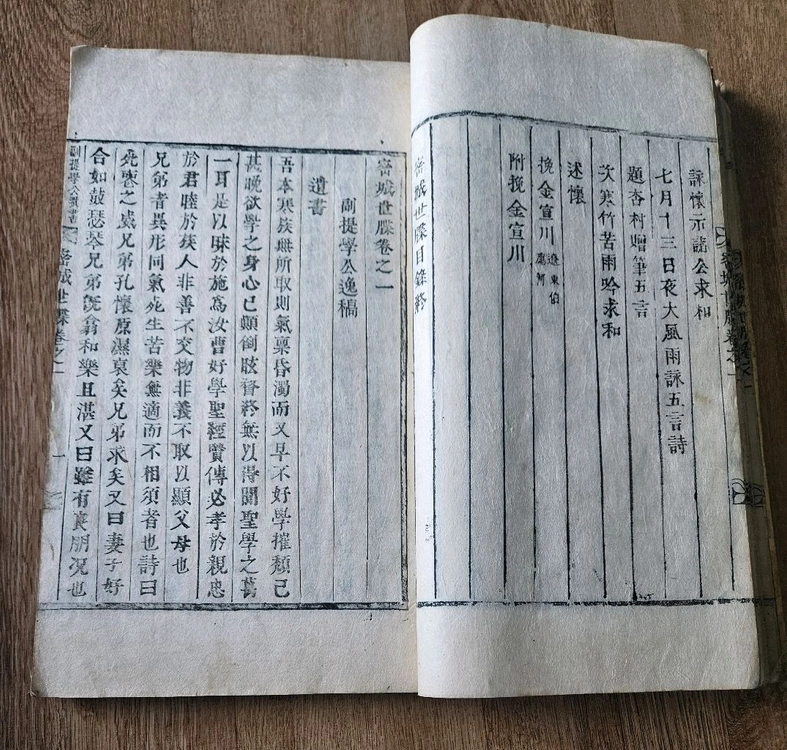 詠懷示諸公求和
七月十三日夜大風雨詠五言詩
題杏村贈筆五言
次寒竹苦雨吟求和
述懷
挽金宣川
遼東伯
應河
附挽金宣川
密城世牒目錄終
密城世牒卷之一
副提學公逸稿
遺書
吾本寒族無所取則氣禀昏濁而又早不好學摧頹已
甚晚欲學之身心已顛倒眩瞀終無以得聞聖學之萬
一耳是以昧於施爲汝曹好學聖經賢傳必孝於親忠
於君睦於族人非善不交物非義不取以顯父母也
兄弟者異形同氣死生苦樂無適而不相須者也詩曰
死喪之威兄弟孔懷原濕裒矣兄弟求矣又曰妻子好
合如鼓瑟琴兄弟旣翕和樂且湛又曰雖有良朋况也
副提學公
密城世牒卷之一
一